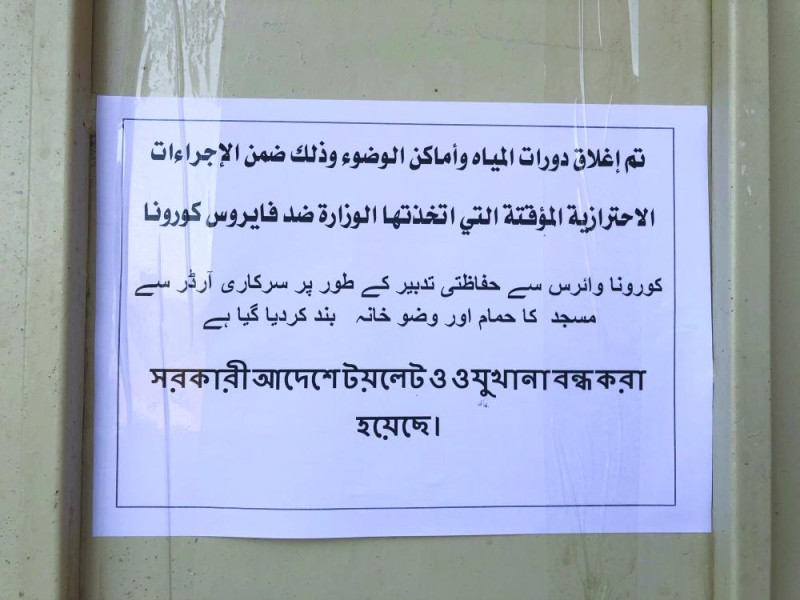 تم إغلاق دورات المياه وأماكن الوضوء وذلك ضمن الإجراءات
الاحترازية المؤقتة التي اتخذتها الوزارة ضد فايروس كورونا
کورونا وائرس سے حفاظتی تدبیر کے طور پر سرکاری آرڈر سے
مسجد کا حمام اور وضو خانہ بند کردیا گیا ہے
সরকারী আদেশে টয়লেট ও ওযুখানা বন্ধ করা
হয়েছে।